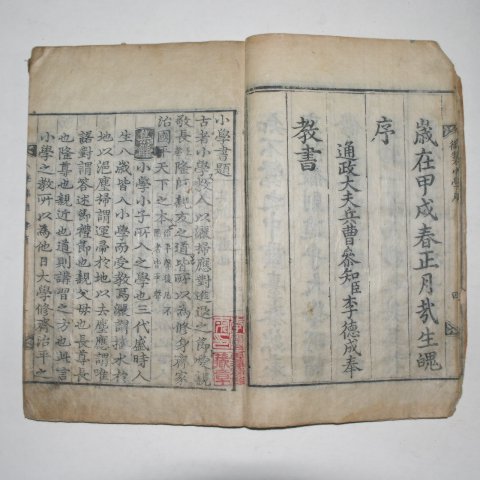 歲在甲戌春正月哉生魄
序
通政大夫兵曹參知臣李德成奉
教書
御製小學序
小學書題
古者小學教人以灑掃應對進退之節愛親
敬長隆師親友之道皆所以為修身齊家
治國平天下之本
小學小子所入之學也三代盛時人
生八歲皆入小學而受教焉灑謂播水於
地以浥塵掃謂運帚於地以去塵應謂唯
諾對謂答述節禮節也親父母也長尊長
也隆尊也親近也道則講習之方也此言
小學之教所以為他日大學修齊治平之